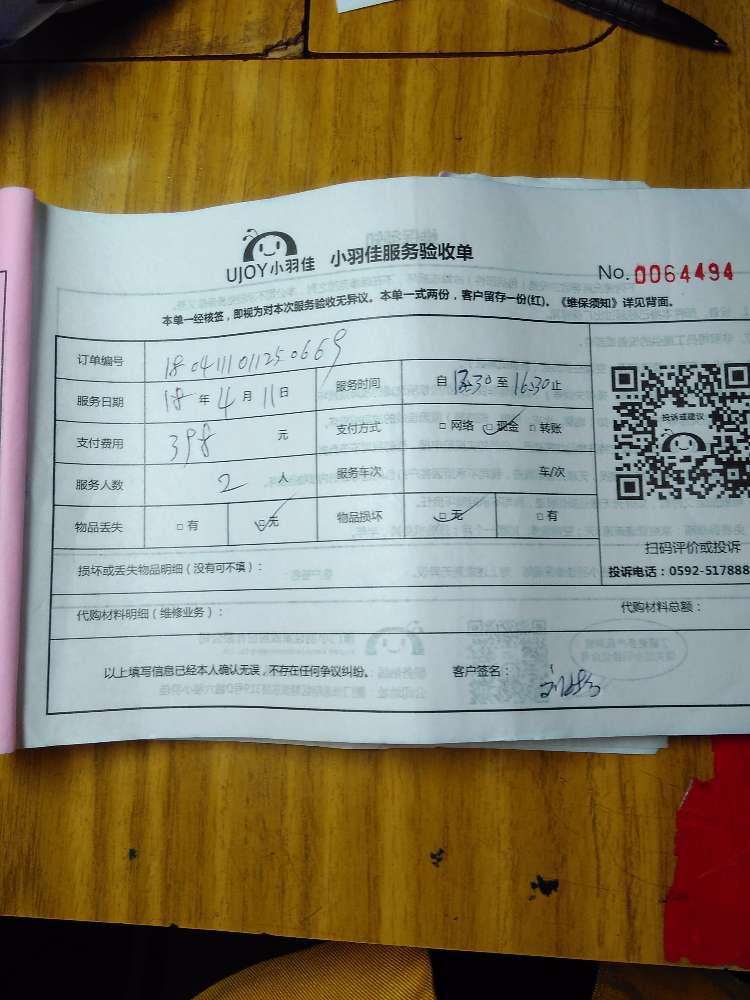 UJOY小羽佳 小羽佳服务验收单
No. 0064494
本单一经核签，即视为对本次服务验收无异议。本单一式两份，客户留存一份(红)。《维保须知》详见背面。
订单编号 1804111011250669
服务日期 18 年 4 月 11 日 服务时间 自 13:30 至 16:30 止
支付费用 398 元 支付方式 □ 网络 □ 现金 □ 转账
服务人数 2 人 服务车次 车/次
物品丢失 □ 有 □ 无 物品损坏 □ 无 □ 有
投诉或建议
扫码评价或投诉
损坏或丢失物品明细（没有可不填）：
投诉电话：0592-517888
代购材料明细（维修业务）： 代购材料总额：
以上填写信息已经本人确认无误，不存在任何争议纠纷。 客户签名：